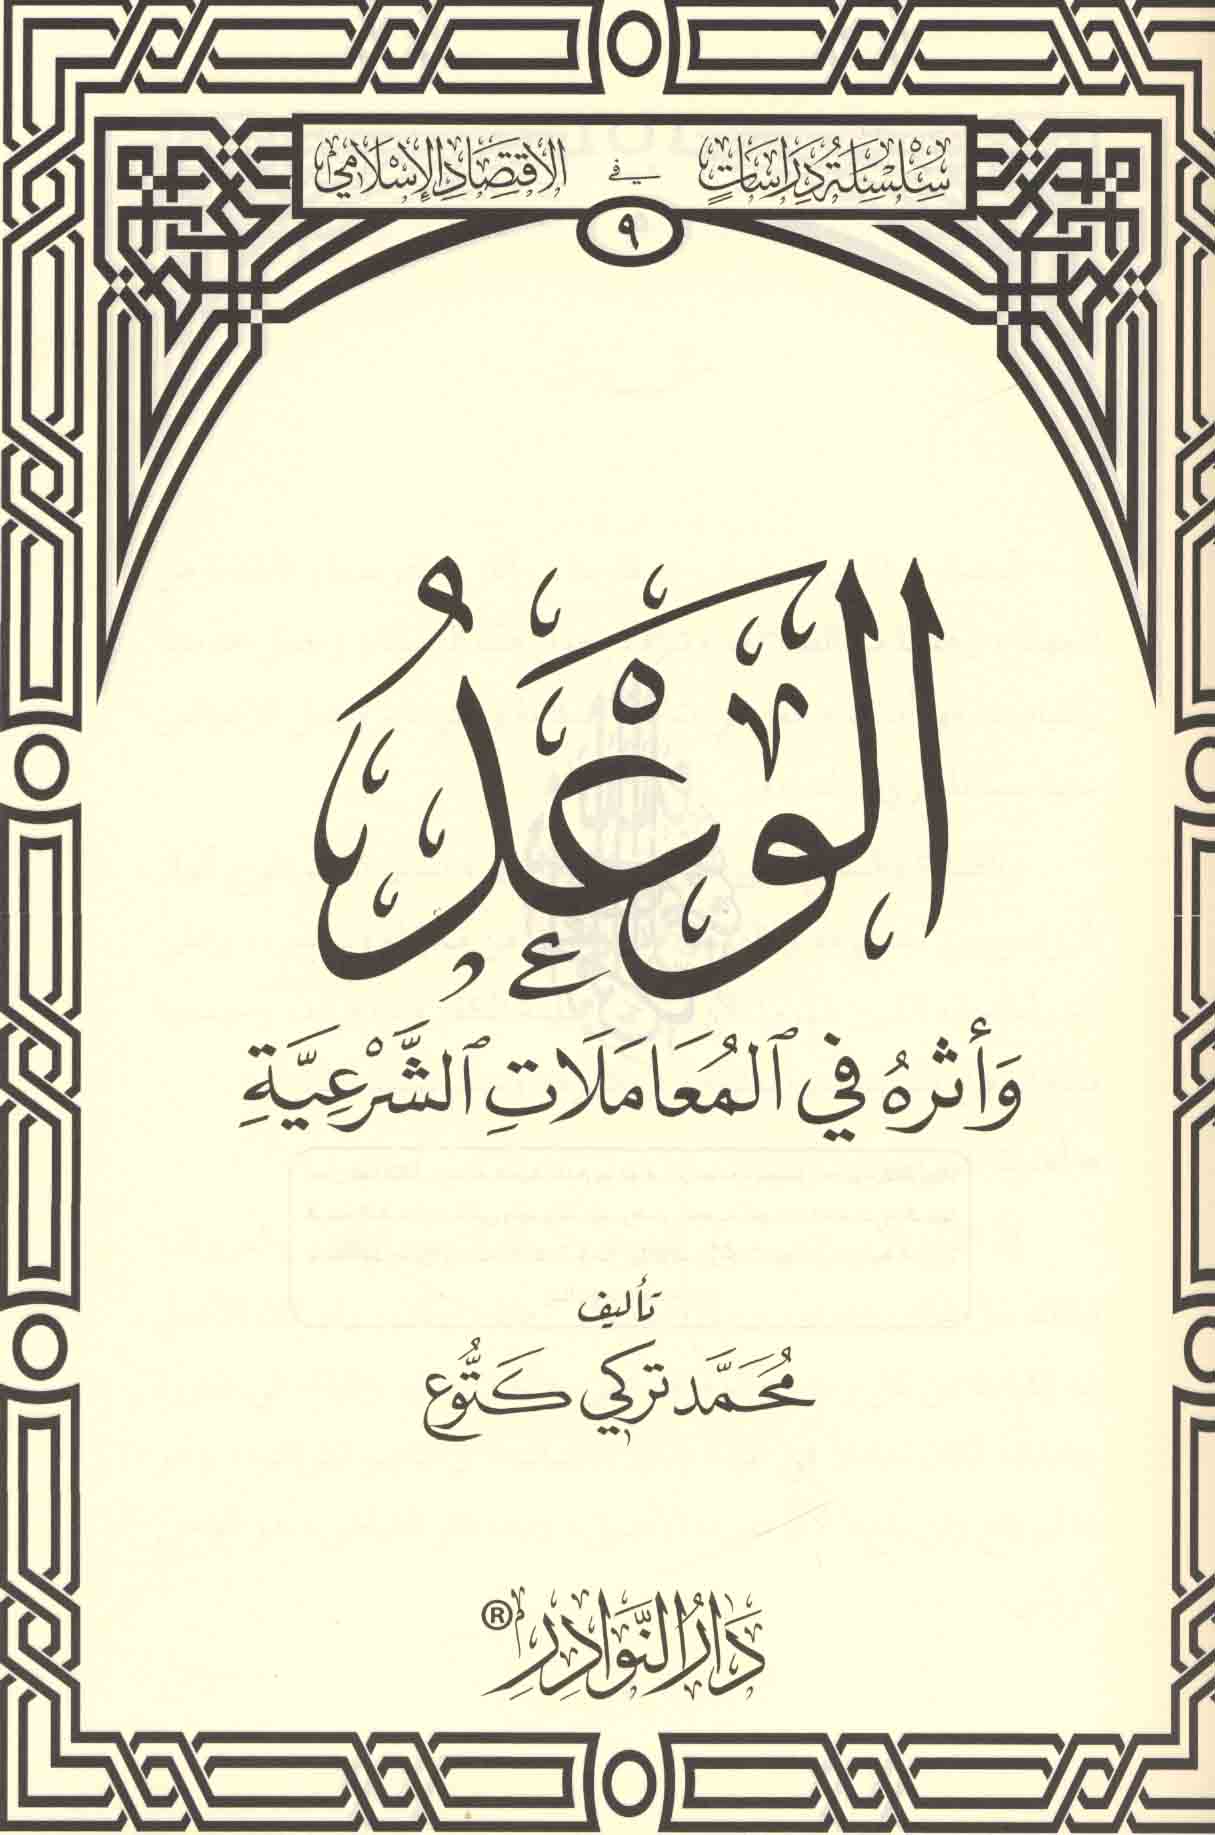 سِلْسِلَةُ دِرَاسَاتٍ في الاقْتِصَادِ الإِسْلَامِيِّ
٩
الوَعْدُ
وَأَثرهُ فِي المُعَامَلَاتِ الشَّرْعِيَّةِ
تأليف
مُحَمَّد تركي كَتُّوع
دَارُ النَّوَادِرِ ®